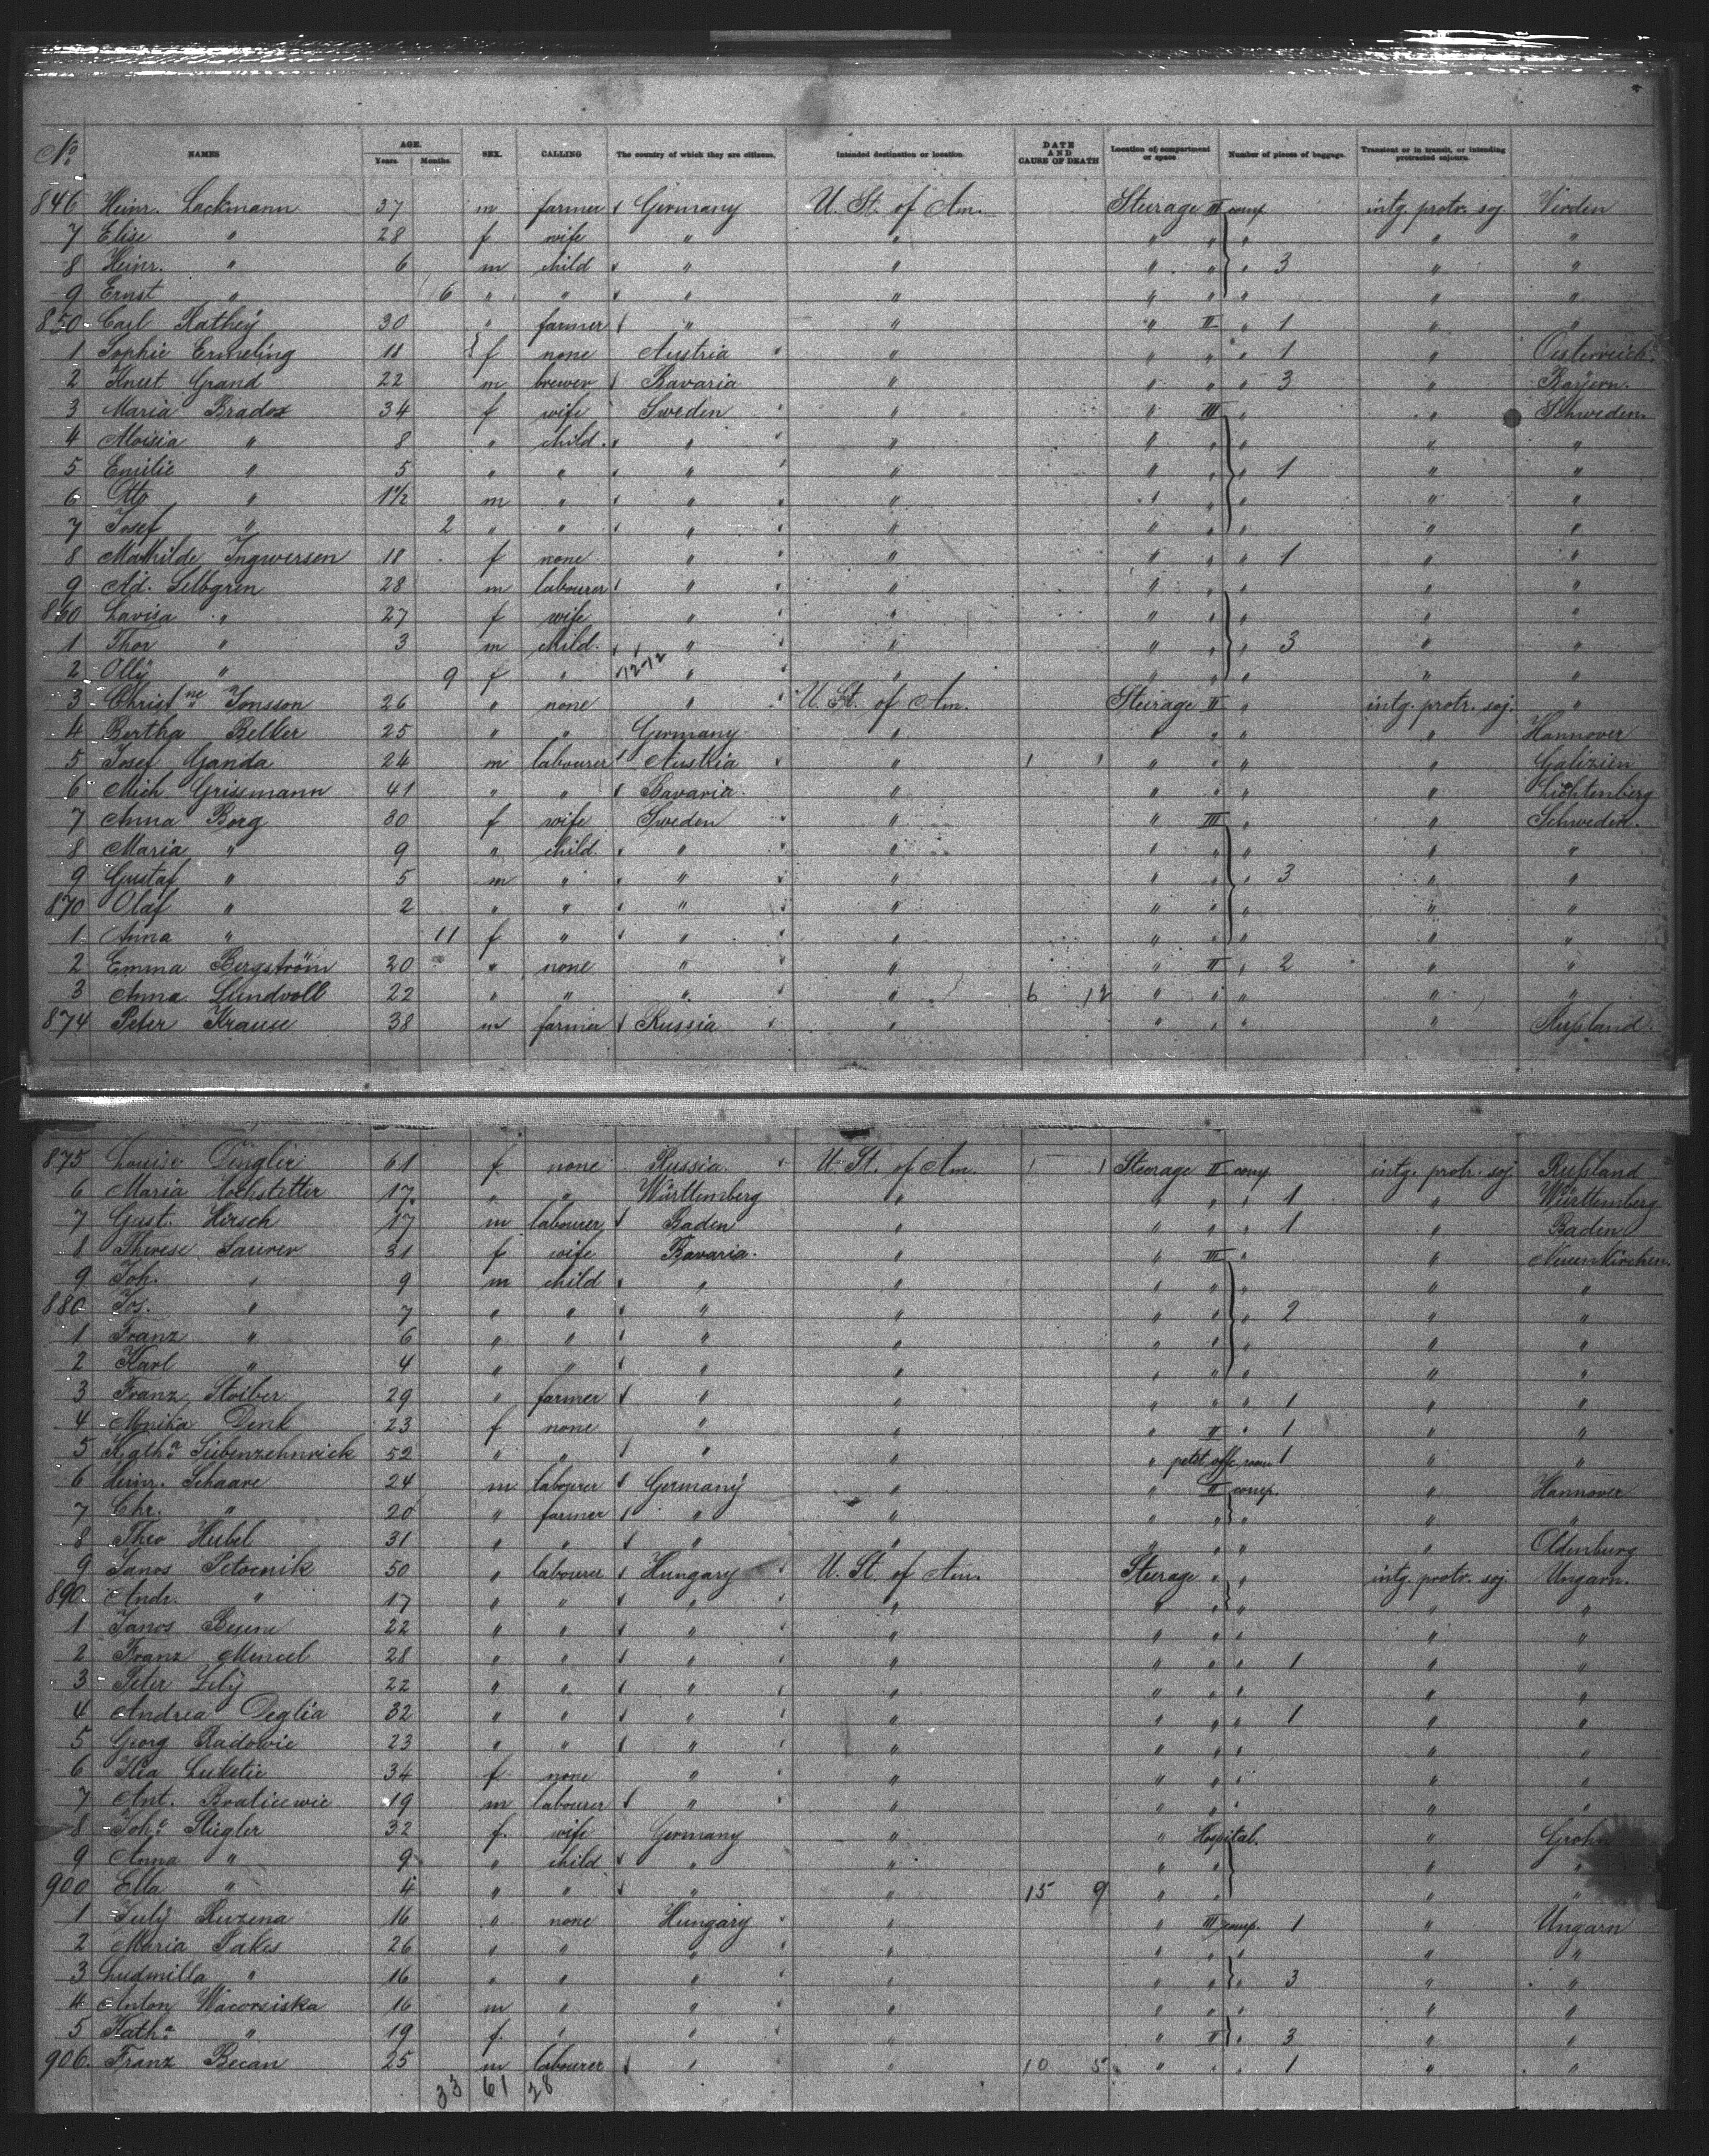 No NAMES AGE. Years. Months. SEX. CALLING The country of which they are citizens. Intended destination or location. DATE AND CAUSE OF DEATH Location of compartment or space Number of pieces of baggage. Transient or in transit, or intending protracted sojourn.
846 Heinr. Lackmann 37 m farmer Germany U. St. of Am. Steerage III comp. intg. protr. soj. Virden
7 Elise " 28 f wife " " " " " " "
8 Heinr. " 6 m child " " " " " 3 " "
9 Ernst " 6 " " " " " " " " "
850 Carl Rathey 30 " farmer " " " II " 1 " "
1 Sophie Ermeling 18 f none Austria " " " " 1 " Oesterreich.
2 Knut Grand 22 m brewer Bavaria " " " " 3 " Bayern.
3 Maria Bradox 34 f wife Sweden " " III " " Schweden.
4 Aloisia " 8 " child. " " " " " " "
5 Emilie " 5 " " " " " " " 1 " "
6 Otto " 1 1/2 m " " " " " " " "
7 Josef " 2 " " " " " " " " "
8 Mathilde Ingwersen 18 f none " " " " " 1 " "
9 Ad. Sellgren 28 m labourer " " " " " " "
860 Lavisa " 27 f wife " " " " " " "
1 Thor " 3 m child. " " " " " 3 " "
2 Olly " 9 f " " " " " " " "
3 Christne Jonsson 26 " none " U. St. of Am. Steerage II " intg. protr. soj. "
4 Bertha Beller 25 " " Germany " " " " " Hannover
5 Josef Ganda 24 m labourer Austria " 1 1 " " " " Galizien
6 Mich. Grissmann 41 " " Bavaria. " " " " " Lichtenberg
7 Anna Berg 30 f wife Sweden " " III " " Schweden.
8 Maria " 9 " child. " " " " " " "
9 Gustaf " 5 m " " " " " " 3 " "
870 Olaf " 2 " " " " " " " " "
1 Anna " 11 f " " " " " " " "
2 Emma Bergström 20 " none " " " II " 2 " "
3 Anna Lundvall 22 " " " " 6 12 " " " " "
874 Peter Krause 38 m farmer Russia " " " " " Rußland.
875 Louise Dingler 61 f none Russia. U. St. of Am. 1 1 Steerage II comp. intg. protr. soj. Rußland
6 Maria Hochstetter 17. " " Württemberg " " " " 1 " Württemberg
7 Gust. Hirsch 17 m labourer Baden " " " " 1 " Baden
8 Therese Saurer 31 f wife Bavaria. " " III " " Neuenkirchen.
9 Joh. " 9 m child " " " " " " "
880 Jos. " 7 " " " " " " " 2 " "
1 Franz " 6 " " " " " " " " "
2 Karl " 4 " " " " " " " " "
3 Franz Stoiber 29 " farmer " " " " " 1 " "
4 Monika Denk 23 f none " " " II " 1 " "
5 Katha Siebenzehnrick 52 " " " " " petit. offc. room 1 " "
6 Heinr. Schaare 24 m labourer Germany " " II comp. " Hannover
7 Chr. " 20 " farmer " " " " " " "
8 Theo Hubel 31 " " " " " " " " Oldenburg
9 Janos Petocnik 50 " labourer Hungary U. St. of Am. Steerage " " intg. protr. soj. Ungarn.
890. Andr. " 17 " " " " " " " " "
1 Janos 22 " " " " " " " " "
2 Franz Mencel 28 " " " " " " " 1 " "
3 Peter 22 " " " " " " " " "
4 Andrea Deglia 32 " " " " " " " 1 " "
5 Georg Radowic 23 " " " " " " " " "
6 Ilia Luketic 34 f none " " " " " " "
7 Ant. Braticewic 19 m labourer " " " " " " "
8 Joh.e Stiegler 32 f. wife Germany " " Hospital. " Grohn
9 Anna " 9 " child " " " " " "
900 Ella " 4 " " " " 15 9 " " " "
1 July Ruzena 16 " none Hungary " " III comp. 1 " Ungarn
2 Maria Pakes 26 " " " " " " " " "
3 Ludmilla " 16 " " " " " " " 3 " "
4 Anton Wacorsiska 16 m " " " " " " " "
5 Katha " 19 f. " " " " II " 3 " "
906. Franz Becan 25 m labourer " " 10 5 " " " 1 " "
33 61 28